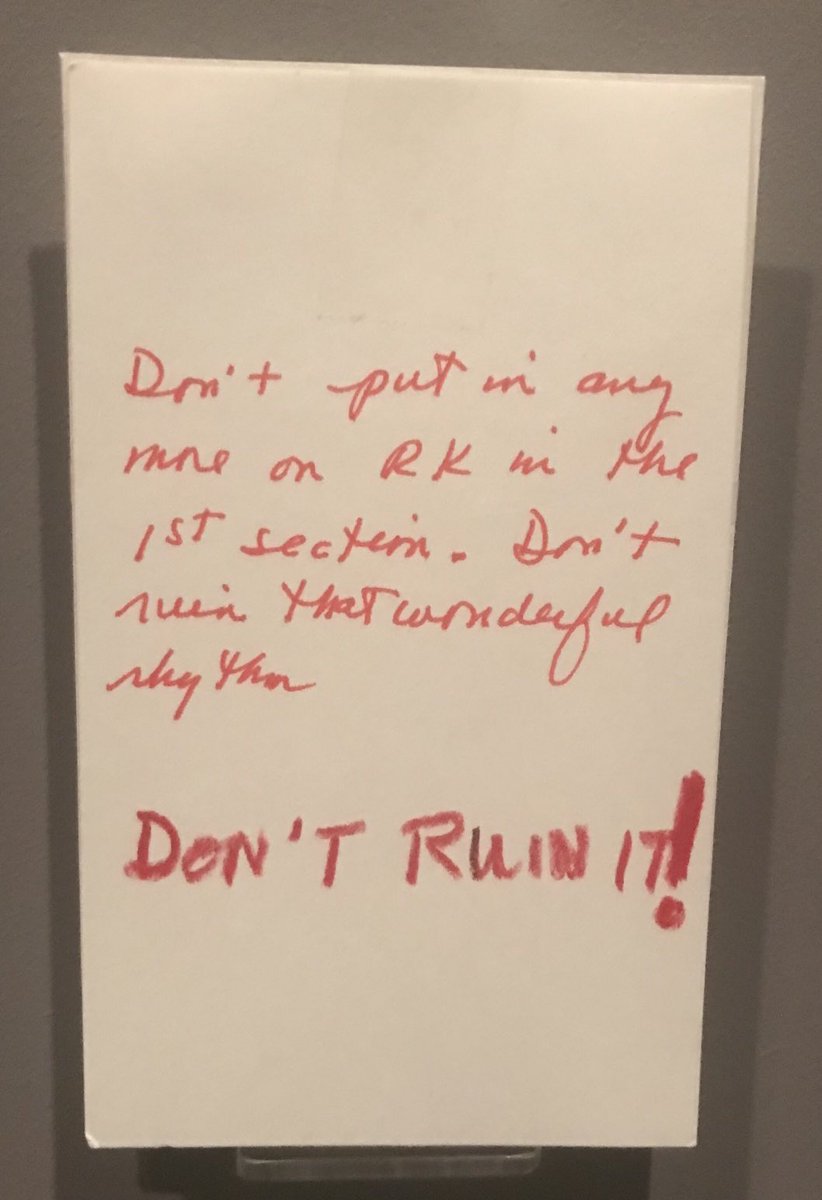 Don't put in any
more on RK in the
1st section. Don't
ruin that wonderful
rhythm
DON'T RUIN IT!